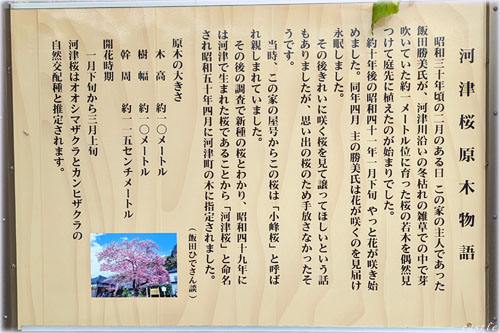 河津桜原木物語
昭和三十年頃の二月のある日 この家の主人であった
飯田勝美氏が、河津川沿いの冬枯れの雑草の中で芽
吹いていた約一メートル位に育った桜の若木を偶然見
つけて庭先に植えたのが始まりでした。
約十年後の昭和四十一年一月下旬 やっと花が咲き始
めました。同年四月 主の勝美氏は花が咲くのを見届け
永眠しました。
その後きれいに咲く桜を見て譲ってほしいという話
もありましたが、思い出の桜のため手放さなかったそ
うです。
当時、この家の屋号からこの桜は「小峰桜」と呼ば
れ親しまれていました。
その後の調査で新種の桜とわかり、昭和四十九年に
は河津で生まれた桜であることから「河津桜」と命名
され昭和五十年四月に河津町の木に指定されました。
(飯田ひでさん談)
原木の大きさ
木高 約一〇メートル
樹幅 約一〇メートル
幹周 約一一五センチメートル
開花時期
一月下旬から三月上旬
河津桜はオオシマザクラとカンヒザクラの
自然交配種と推定されます。